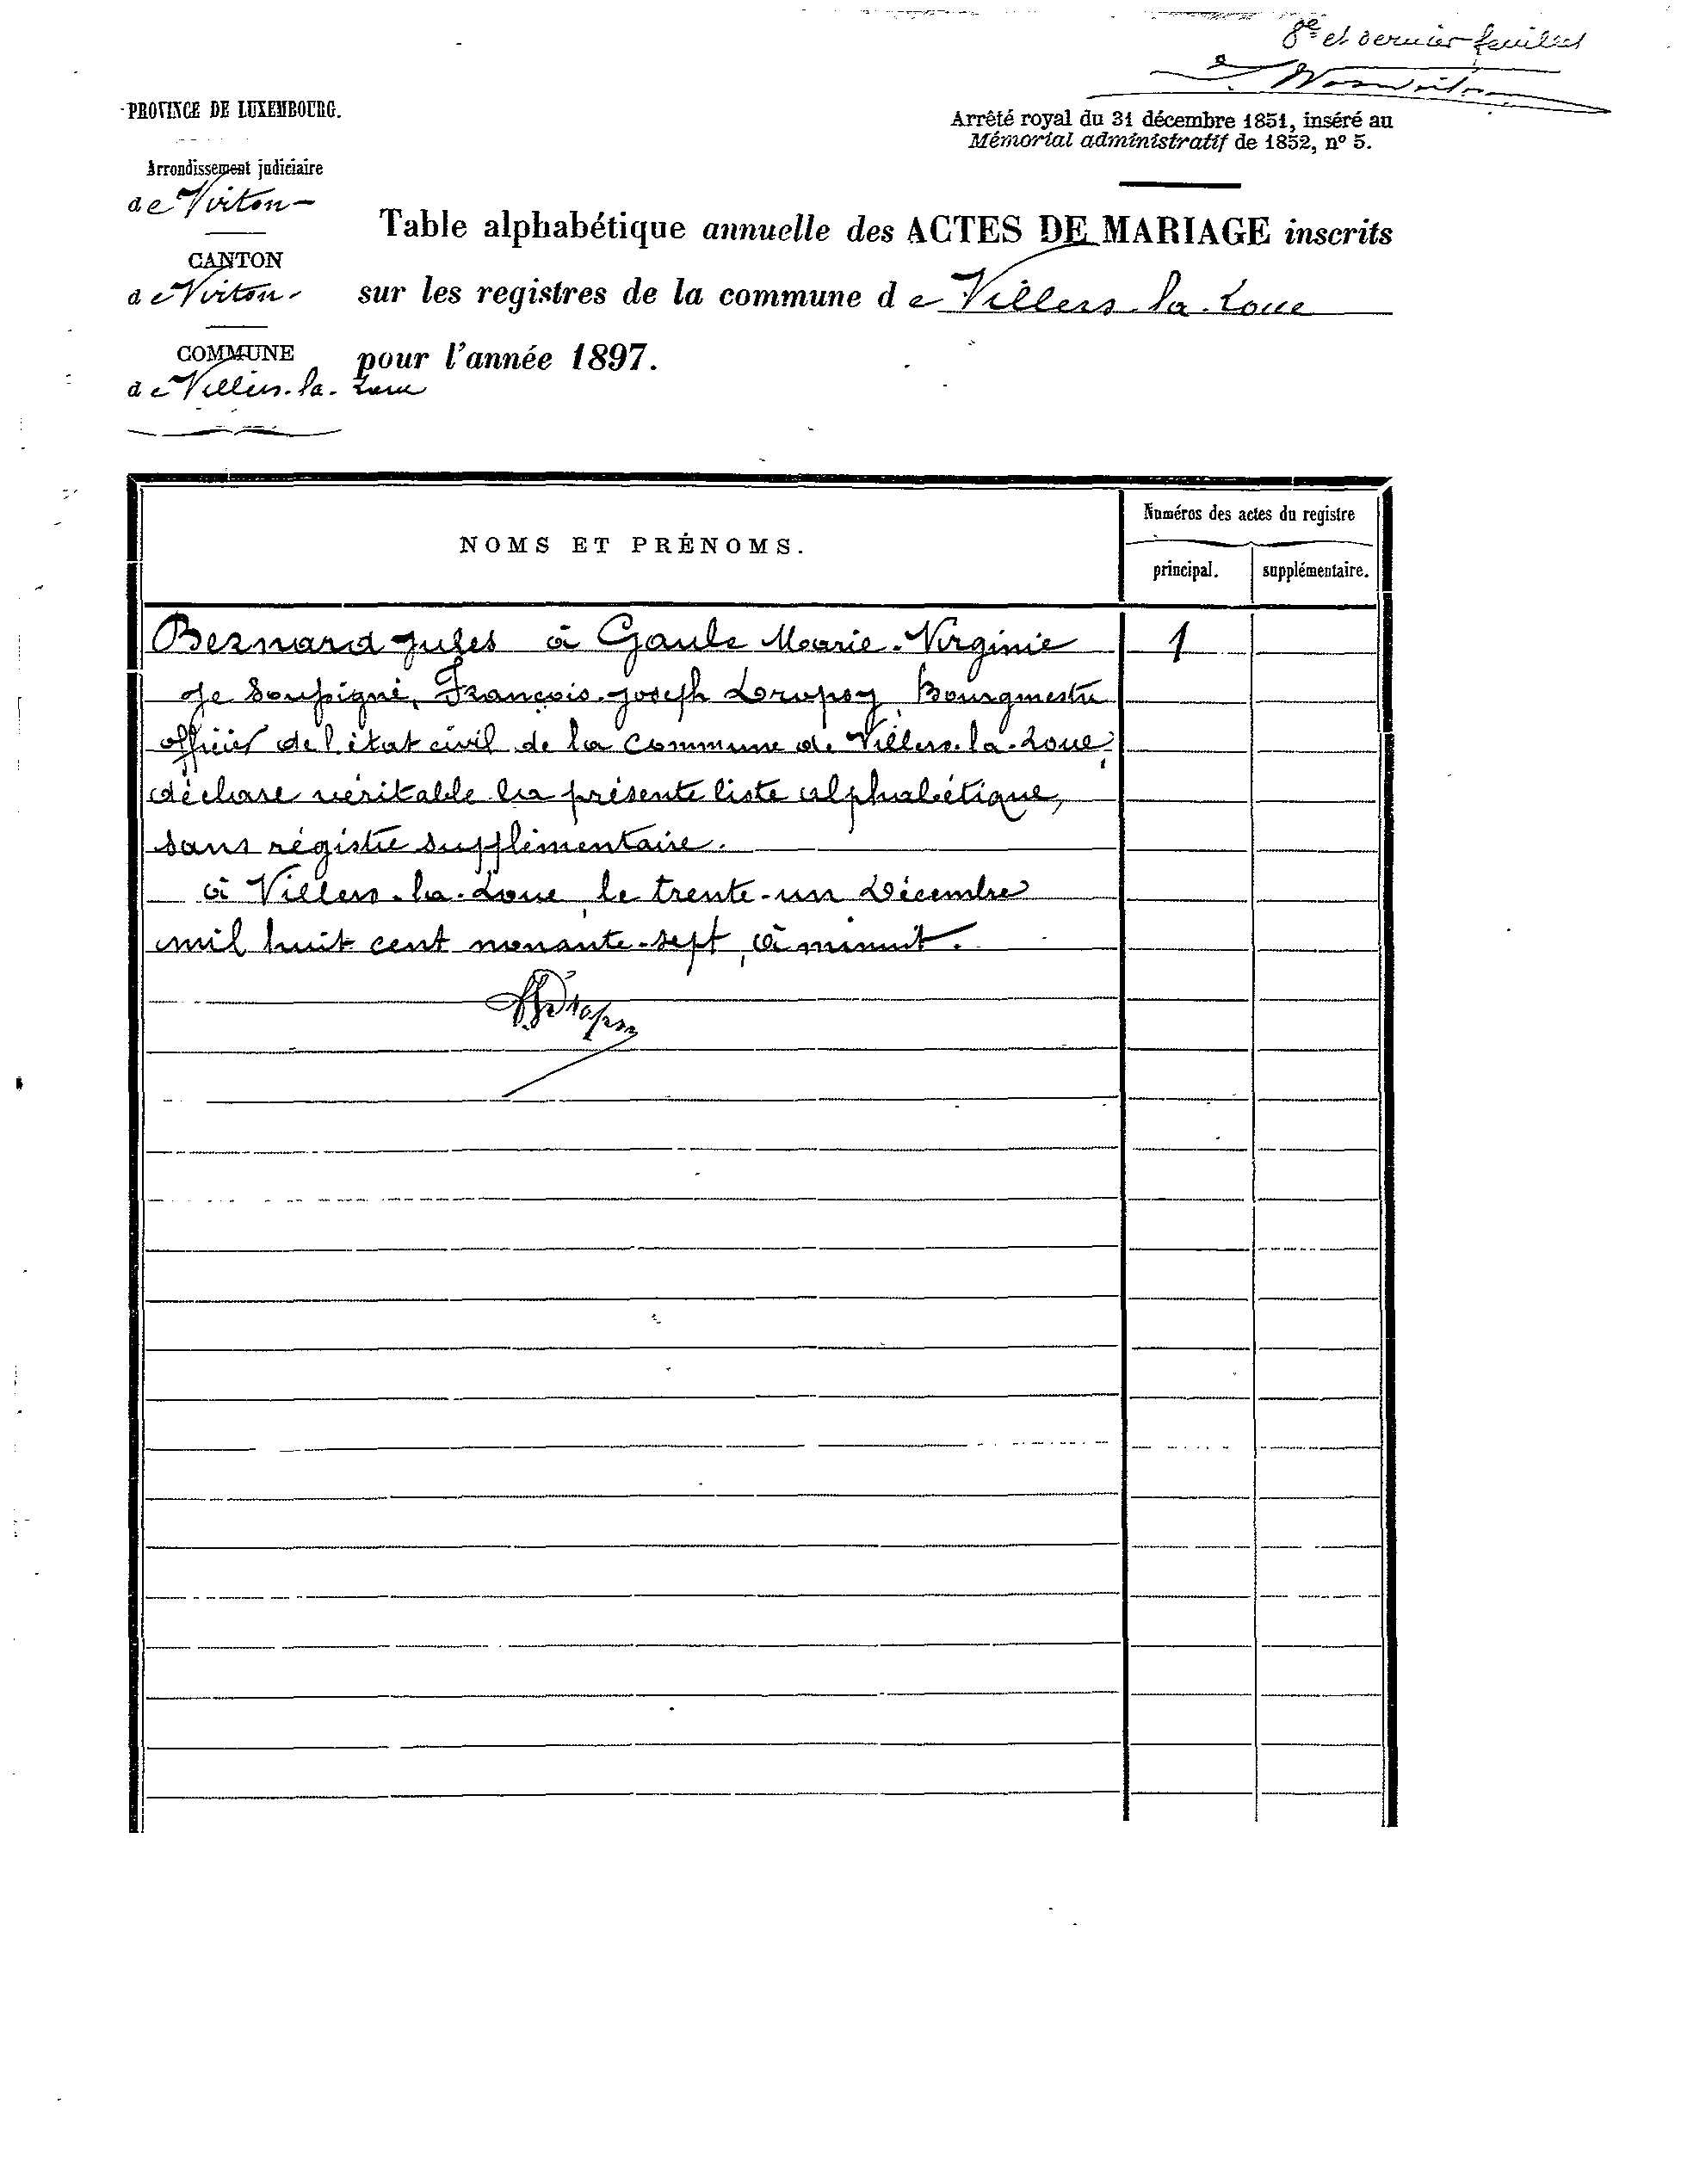 8e et dernier feuillet
PROVINCE DE LUXEMBOURG.
Arrêté royal du 31 décembre 1851, inséré au
Mémorial administratif de 1852, nº 5.
Arrondissement judiciaire
de Virton
CANTON
de Virton
COMMUNE
de Villers-la-Loue
Table alphabétique annuelle des ACTES DE MARIAGE inscrits
sur les registres de la commune de Villers-la-Loue
pour l'année 1897.
NOMS ET PRÉNOMS.
Numéros des actes du registre
principal. supplémentaire.
Bernard Jules à Gaule Marie-Virginie 1
Je Soussigné, François-Joseph Bourgmestre
officier de l'état civil de la Commune de Villers-la-Loue,
déclare véritable la présente liste alphabétique,
sans régistre supplémentaire.
à Villers-la-Loue, le trente-un Décembre
mil huit cent nonante-sept, à minuit.